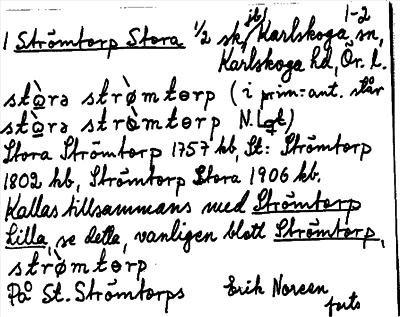 1-2
1 Strömtorp Stora 1/2 sk, jb, Karlskoga sn,
Karlskoga hd, Ör. l.
stɷ̀ra strø̀mtɵrp (i prim=ant. står
stɷ̀ra strø̀mtɵrp N. Lgt)
Stora Strömtorp 1757 hb, St: Strömtorp
1802 hb, Strömtorp Stora 1906 kb.
Kallas tillsammans med Strömtorp
Lilla, se detta, vanligen blott Strömtorp,
strø̀mtɵrp
På St. Strömtorps Erik Noreen
forts